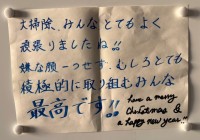 大掃除、みんなとてもよく
頑張りましたね!!
嫌な顔一つせず、むしろとても
積極的に取り組むみんな
最高です!!
have a merry
Christmas &
a happy new year!!